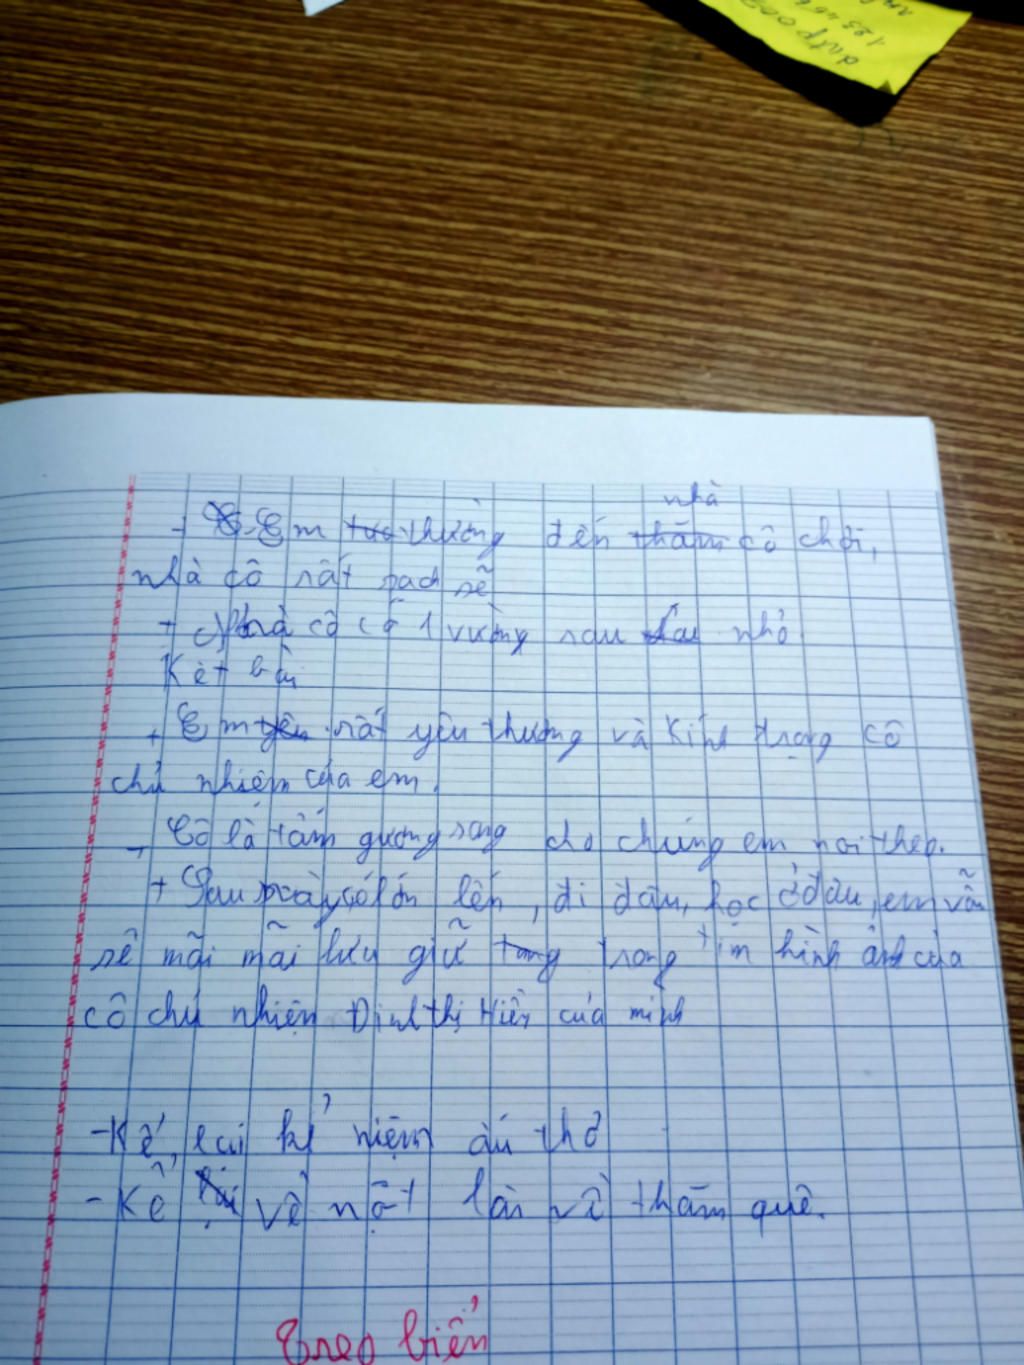 + Em thường đến nhà cô chơi,
nhà cô rất sạch sẽ
+ Nhà cô có 1 vường rau nhỏ
Kết bài
+ Em rất yêu thương và Kính trọng cô
chủ nhiệm của em.
+ Cô là tấm gương sáng cho chúng em noi theo.
+ Sau này, có lớn lên, đi đâu, học ở đâu, em vẫn
sẽ mãi mãi lưu giữ trong tim hình ảnh của
cô chủ nhiệm Đinh thị Hiền của mình
- Kể lại kỉ niệm ấu thơ
- Kể về một lần về thăm quê.
Treo biển